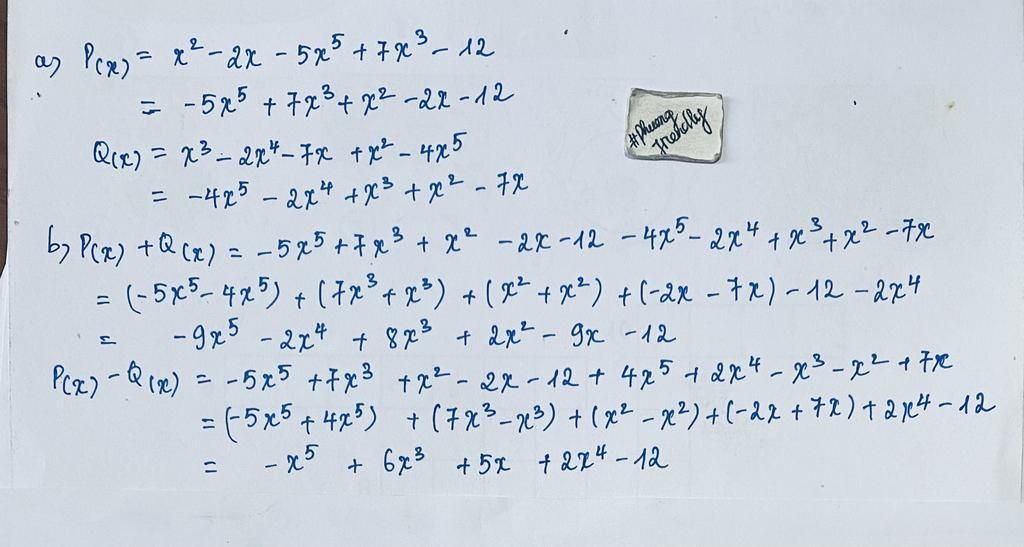 a) P(x) = x² - 2x - 5x⁵ + 7x³ - 12
= -5x⁵ + 7x³ + x² - 2x - 12
#Phuong
friendly
Q(x) = x³ - 2x⁴ - 7x + x² - 4x⁵
= -4x⁵ - 2x⁴ + x³ + x² - 7x
b) P(x) + Q(x) = -5x⁵ + 7x³ + x² - 2x - 12 - 4x⁵ - 2x⁴ + x³ + x² - 7x
= (-5x⁵ - 4x⁵) + (7x³ + x³) + (x² + x²) + (-2x - 7x) - 12 - 2x⁴
= -9x⁵ - 2x⁴ + 8x³ + 2x² - 9x - 12
P(x) - Q(x) = -5x⁵ + 7x³ + x² - 2x - 12 + 4x⁵ + 2x⁴ - x³ - x² + 7x
= (-5x⁵ + 4x⁵) + (7x³ - x³) + (x² - x²) + (-2x + 7x) + 2x⁴ - 12
= -x⁵ + 6x³ + 5x + 2x⁴ - 12